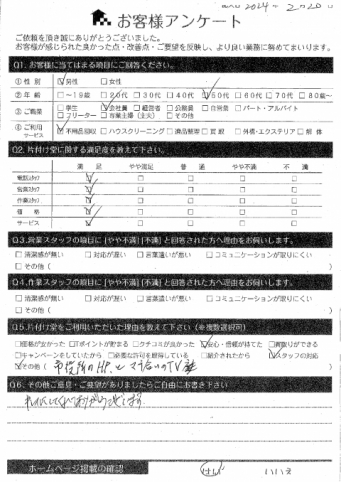 お客様アンケート
ご依頼を頂き誠にありがとうございました。
お客様が感じられた良かった点・改善点・ご要望を反映し、より良い業務に努めてまいります。
Q1. お客様に当てはまる項目にご回答ください。
① 性 別 男性 女性
② 年 齢 ～19歳 20代 30代 40代 50代 60代 70代 80歳～
③ ご職業 学生 会社員 経営者 公務員 自営業 パート・アルバイト
フリーター 専業主婦（主夫） その他
④ ご利用サービス 不用品回収 ハウスクリーニング 遺品整理 買取 外構・エクステリア 解体
Q2. 片付け堂に関する満足度を教えて下さい。
満足 やや満足 普通 やや不満 不満
電話スタッフ
営業スタッフ
作業スタッフ
価格
サービス
Q3.営業スタッフの項目に【やや不満】【不満】と回答された方へ理由をお伺いします。
清潔感が無い 対応が遅い 言葉遣いが悪い コミュニケーションが取りにくい
その他（ ）
Q4.作業スタッフの項目に【やや不満】【不満】と回答された方へ理由をお伺いします。
清潔感が無い 対応が遅い 言葉遣いが悪い コミュニケーションが取りにくい
その他（ ）
Q5.片付け堂をご利用いただいた理由を教えて下さい（※複数選択可）
価格が安かった ポイントが貯まる クチコミが良かった 安心・信頼が持てた 買取りができる
キャンペーンをしていたから 必要な許可を取得している 紹介されたから スタッフの対応
その他（ 市役所のHP、
Q6. その他ご意見・ご要望がありましたらご自由にお書き下さい
ホームページ掲載の確認 はい いいえ